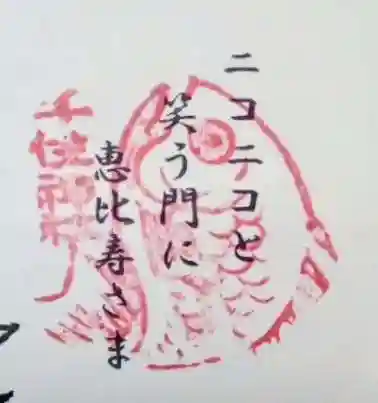 ニコニコと
笑う門に
恵比寿さま
千住神社